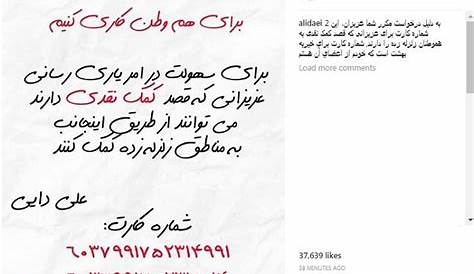 برای هم وطن کاری کنیم
برای سهولت در امر یاری رسانی
عزیزانی که قصد کمک نقدی دارند
می توانند از طریق اینجانب
به مناطق زلزله زده کمک کنند
علی دایی
شماره کارت:
۶۰۳۷۹۹۱۷۵۲۳۱۴۹۹۱
alidaei 2 به دلیل درخواست مکرر شما عزیزان، این
شماره کارت برای عزیزانی که قصد کمک نقدی به
هموطنان زلزله زده را دارند. شماره کارت برای خیریه
بهشت است که خودم از اعضای آن هستم
Load more comments
37,639 likes
28 MINUTES AGO